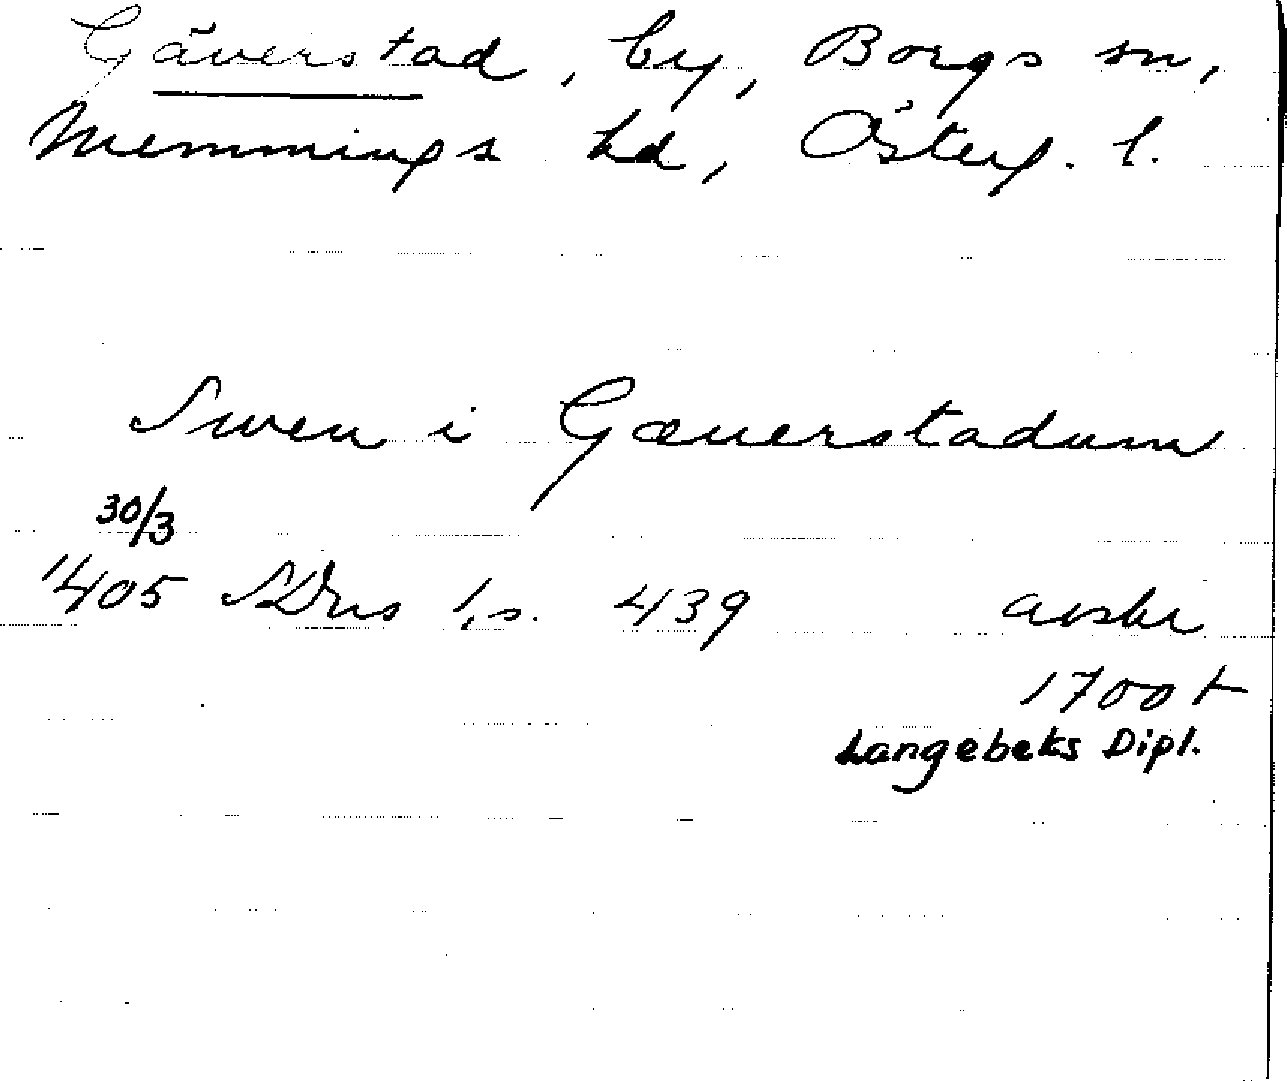 Gäverstad, by, Borgs sn,
Memmings hd, Österg. l.
Swen i Gæuerstadum
30/3
1405 SDns 1, s. 439 avskr
1700 t
Langebeks Dipl.